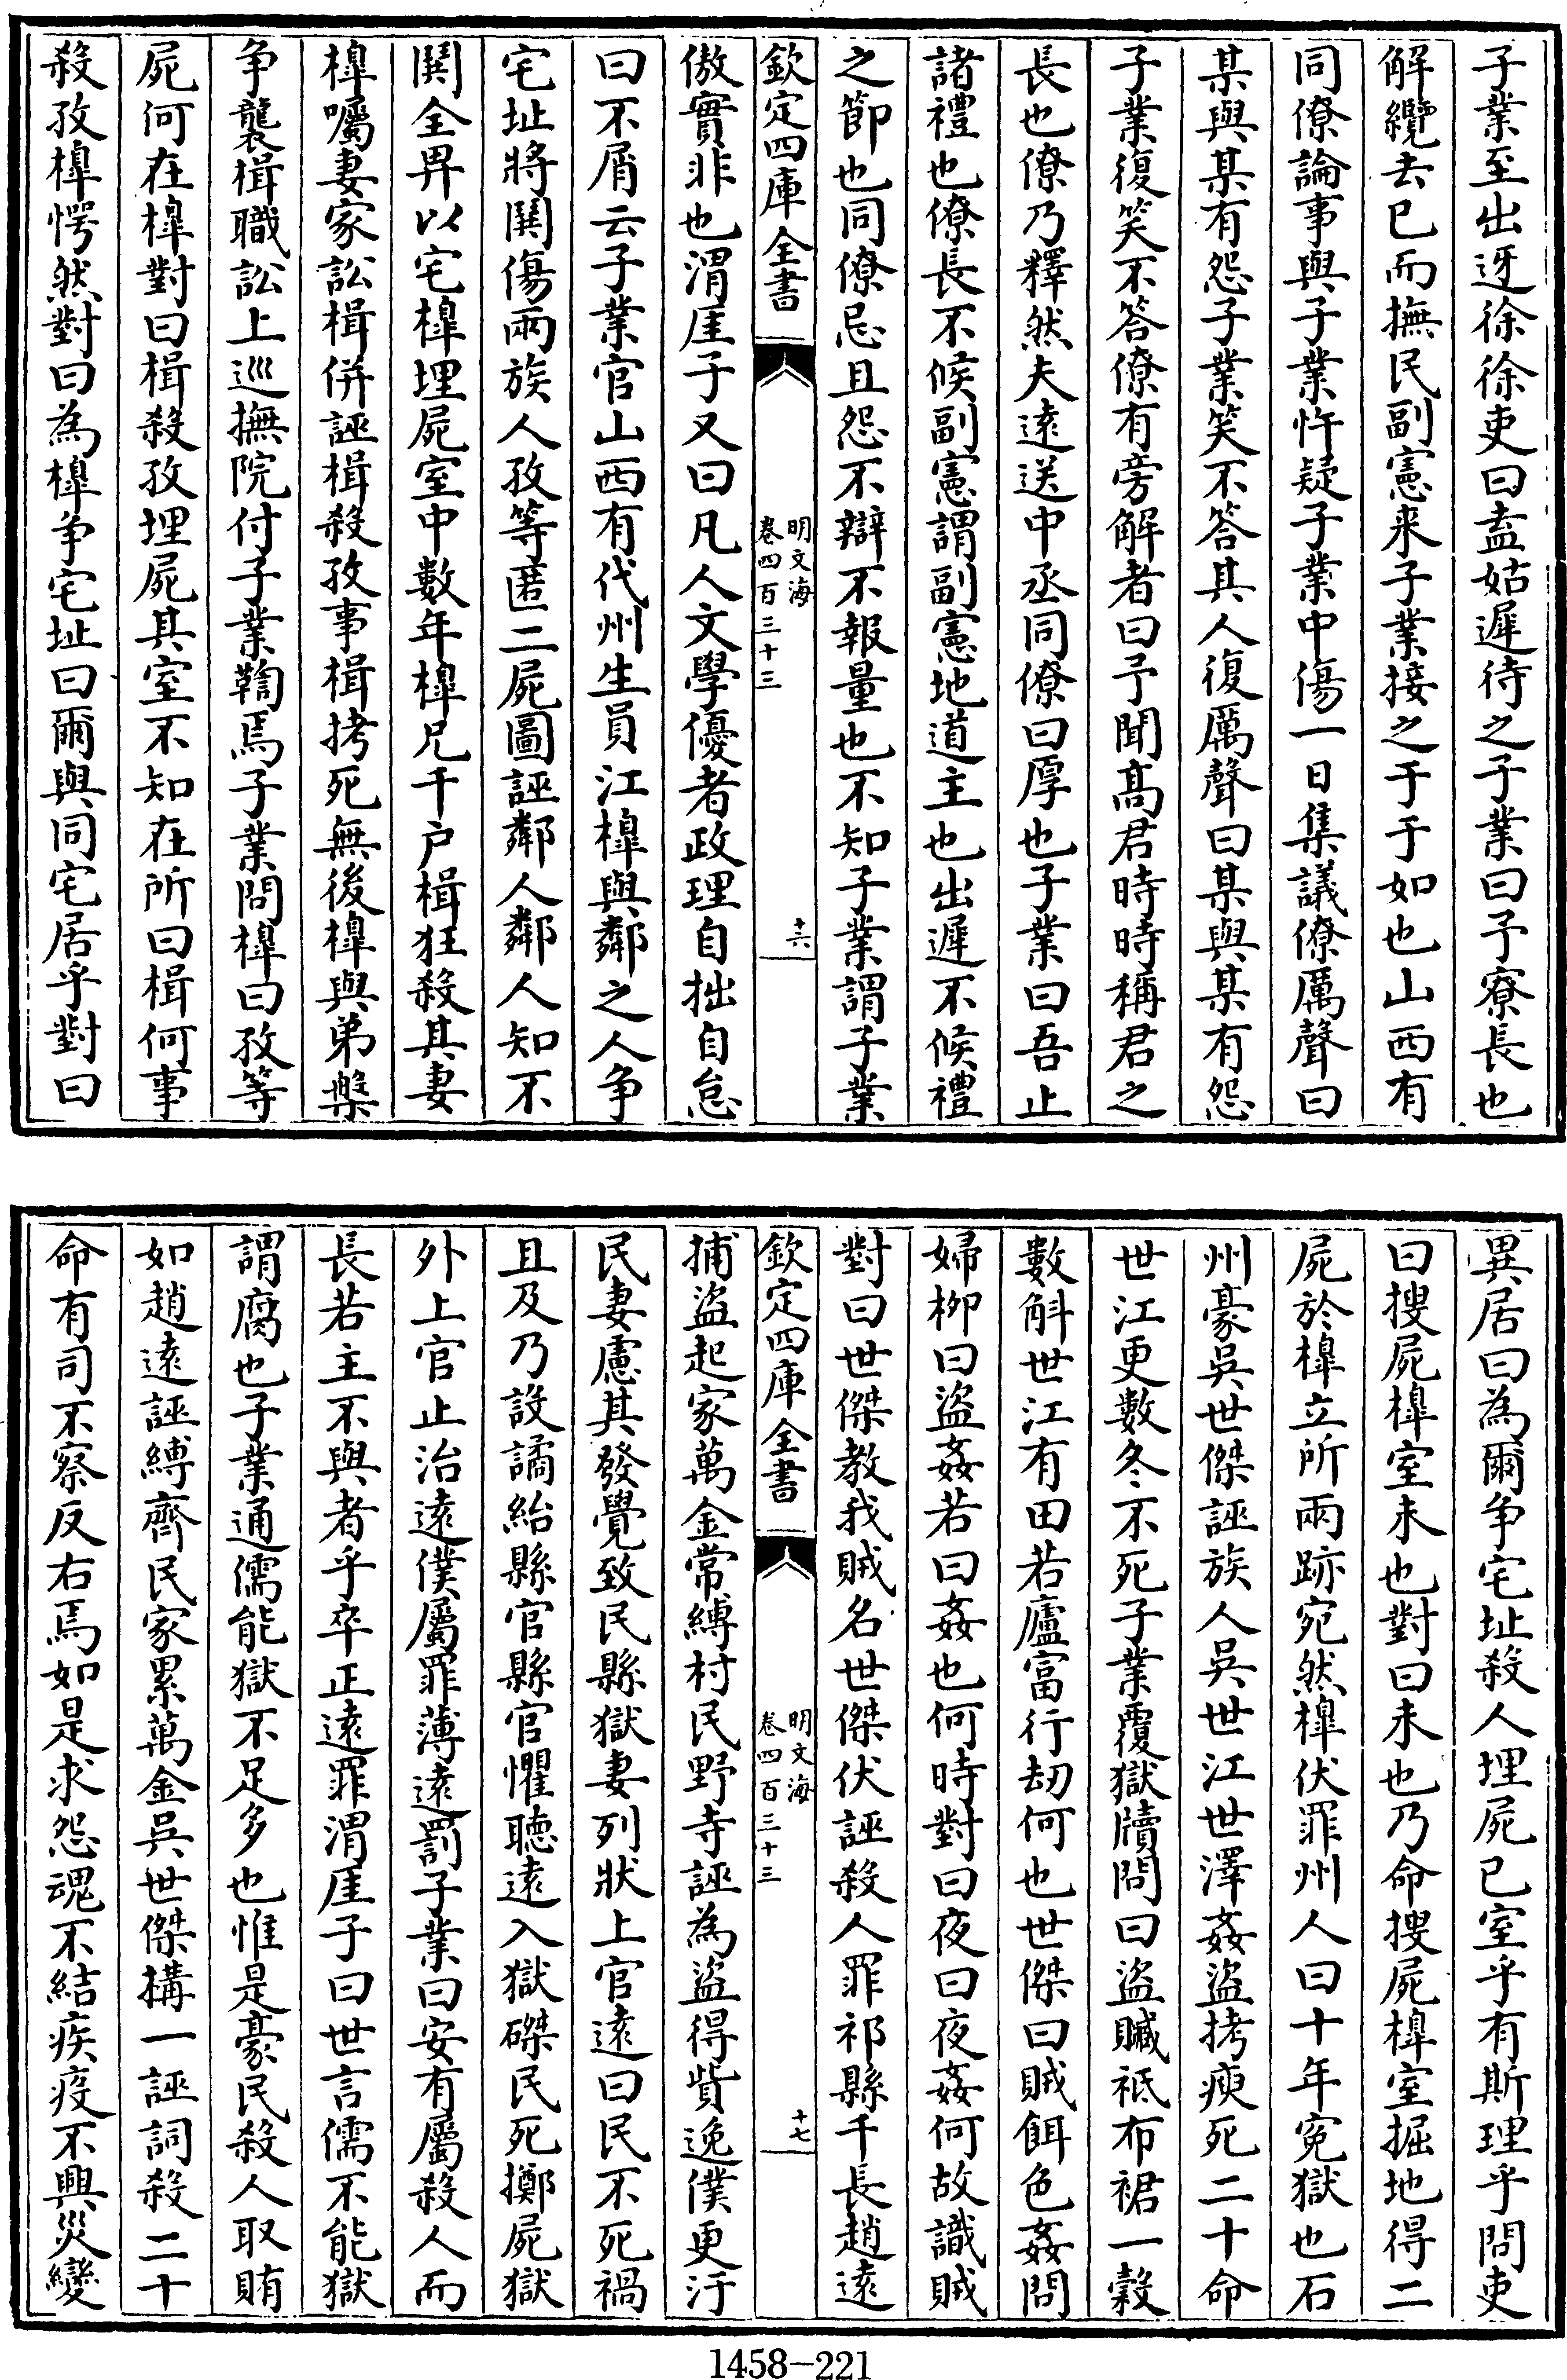 子業至出迓徐徐吏曰盍姑遲待之子業曰予寮長也
解纜去已而撫民副憲来子業接之于于如也山西有
同僚論事與子業忤疑子業中傷一日集議僚厲聲曰
某與某有怨子業笑不答其人復厲聲曰某與某有怨
子業復笑不答僚有旁解者曰予聞髙君時時稱君之
長也僚乃釋然夫逺送中丞同僚曰厚也子業曰吾止
諸禮也僚長不候副憲謂副憲地道主也出遲不候禮
之節也同僚忌且怨不辯不報量也不知子業謂子業
欽定四庫全書
明文海
卷四百三十三
十六
傲實非也渭厓子又曰凡人文學優者政理自拙自怠
曰不屑云子業官山西有代州生員江槹與鄰之人争
宅址將鬬傷兩族人孜等匿二屍圖誣鄰人鄰人知不
鬬全畀以宅槹埋屍室中數年槹兄千户楫狂殺其妻
槹嘱妻家訟楫併誣楫殺孜事楫拷死無後槹與弟槃
争襲楫職訟上巡撫院付子業鞫焉子業問槹曰孜等
屍何在槹對曰楫殺孜埋屍其室不知在所曰楫何事
殺孜槹愕然對曰為槹争宅址曰爾與同宅居乎對曰
異居曰為爾争宅址殺人埋屍已室乎有斯理乎問吏
曰搜屍槹室未也對曰未也乃命搜屍槹室掘地得二
屍於槹立所兩跡宛然槹伏罪州人曰十年寃獄也石
州豪吳世傑誣族人吳世江世澤姦盜拷瘐死二十命
世江更數冬不死子業覆獄牘問曰盜贓祗布裙一穀
數斛世江有田若廬富行刼何也世傑曰賊餌色姦問
婦柳曰盜姦若曰姦也何時對曰夜曰夜姦何故識賊
對曰世傑教我賊名世傑伏誣殺人罪祁縣千長趙逺
欽定四庫全書
明文海
卷四百三十三
十七
捕盜起家萬金常縛村民野寺誣為盜得貲逸僕更汙
民妻慮其發覺致民縣獄妻列狀上官逺曰民不死禍
且及乃設譎紿縣官縣官懼聴逺入獄磔民死擲屍獄
外上官止治逺僕屬罪薄逺罰子業曰安有屬殺人而
長若主不與者乎卒正逺罪渭厓子曰世言儒不能獄
謂腐也子業通儒能獄不足多也惟是豪民殺人取賄
如趙逺誣縛齊民家累萬金吳世傑搆一誣詞殺二十
命有司不察反右焉如是求怨魂不結疾疫不興災變
1458-221